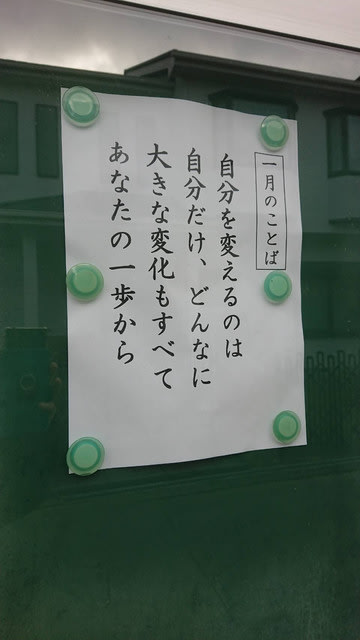 一月のことば
自分を変えるのは
自分だけ、どんなに
大きな変化もすべて
あなたの一歩から